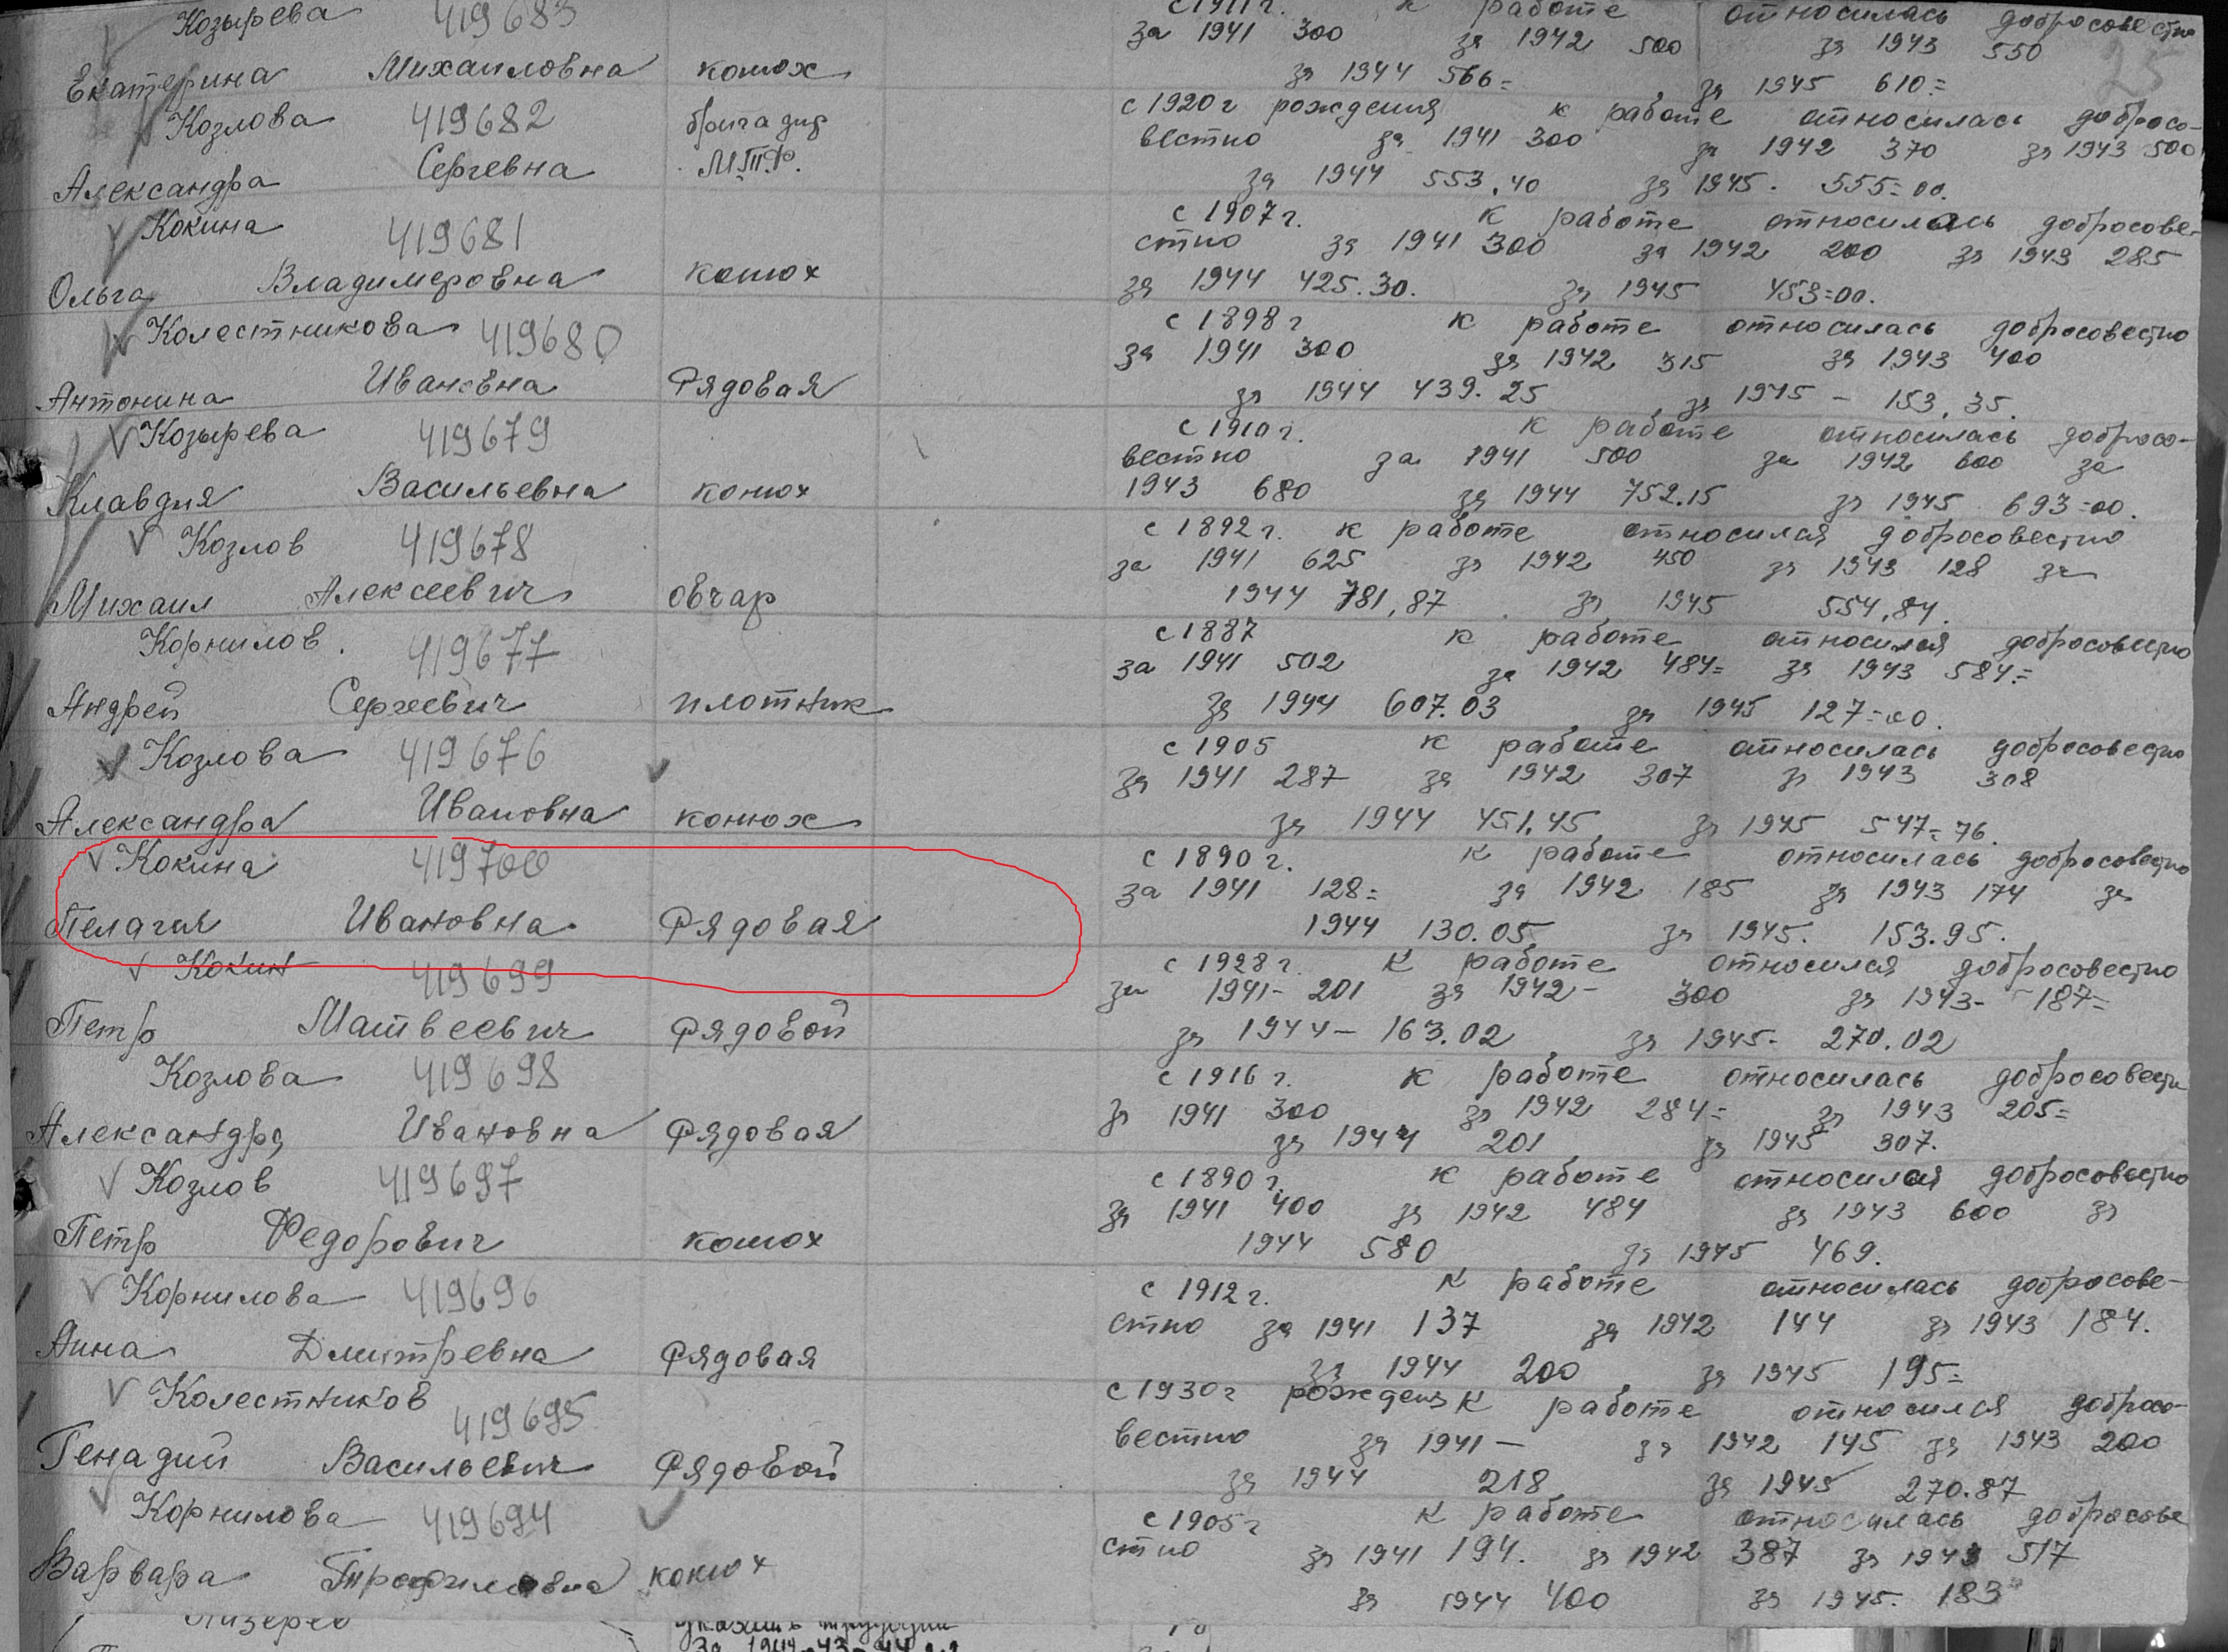 Козырева 419683 с 1911 г. к работе относилась добросовестно
за 1941 300 за 1942 500 за 1943 550
25
Екатерина Михаиловна конюх за 1944 566= за 1945 610=
Козлова 419682 бригадир с 1920 г рождения к работе относилась добросо-
вестно за 1941 300 за 1942 370 за 1943 500
Александра Сергевна М.Т.Ф. за 1944 553,40 за 1945. 555=00.
Кокина 419681 с 1907 г. к работе относилась добросове-
стно за 1941 300 за 1942 200 за 1943 285
Ольга Владимеровна конюх за 1944 425.30. за 1945 453=00.
Колестникова 419680 с 1898 г к работе относилась добросовестно
за 1941 300 за 1942 315 за 1943 400
Антонина Ивановна Рядовая за 1944 439.25 за 1945 - 153,35.
Козырева 419679 с 1910 г. к работе относилась добросо-
вестно за 1941 500 за 1942 600 за
Клавдия Васильевна конюх 1943 680 за 1944 752.15 за 1945 693=00.
Козлов 419678 с 1892 г. к работе относился добросовестно
за 1941 625 за 1942 450 за 1943 128 за
Михаил Алексеевич овчар 1944 781,87 за 1945 554,84.
Корнилов. 419677 с 1887 к работе относился добросовестно
за 1941 502 за 1942 484= за 1943 584=
Андрей Сергеевич плотник за 1944 607.03 за 1945 127=00.
Козлова 419676 с 1905 к работе относилась добросовестно
за 1941 287 за 1942 307 за 1943 308
Александра Ивановна конюх за 1944 451,45 за 1945 547=76.
Кокина 419700 с 1890 г. к работе относилась добросовестно
за 1941 128= за 1942 185 за 1943 174 за
Пелагия Ивановна Рядовая 1944 130.05 за 1945. 153.95.
Кокин 419699 с 1928 г. к работе относился добросовестно
за 1941- 201 за 1942- 300 за 1943- 187=
Петр Матвеевич Рядовой за 1944- 163.02 за 1945- 270.02
Козлова 419698 с 1916 г. к работе относилась добросовестн
за 1941 300 за 1942 284= за 1943 205=
Александра Ивановна Рядовая за 1944 201 за 1945 307.
Козлов 419697 с 1890 г. к работе относился добросовестно
за 1941 400 за 1942 484 за 1943 600 за
Петр Федорович конюх 1944 580 за 1945 469.
Корнилова 419696 с 1912 г. к работе относилась добросове-
стно за 1941 137 за 1942 144 за 1943 184.
Анна Дмитревна Рядовая за 1944 200 за 1945 195=
Колестников 419695 с 1930 г рождения к работе относился добросо-
вестно за 1941 - за 1942 145 за 1943 200
Генадий Васильевич Рядовой за 1944 218 за 1945 270.87
Корнилова 419694 с 1905 г к работе относилась добросове
стно за 1941 194. за 1942 387 за 1943 517
Варвара конюх за 1944 400 за 1945. 183